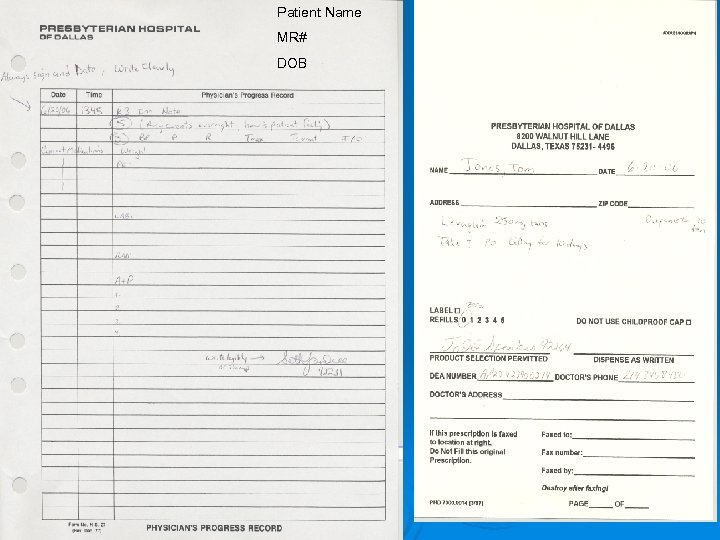 Patient Name
MR#
DOB
PRESBYTERIAN HOSPITAL
OF DALLAS
Always sign and Date, Write Clearly
Date Time Physician's Progress Record
6/20/06 1345 R3 Im Note
(S) (Any events overnight, how's patient feeling)
BP P R Tmax Tcurrent I/O
Current Medications Weight
PE:
LABS:
A+P
1.
2.
3.
4.
write legibly →
42231
Form No. H.G. 27
PHYSICIAN'S PROGRESS RECORD
ADDRESSOGRAPH
PRESBYTERIAN HOSPITAL OF DALLAS
8200 WALNUT HILL LANE
DALLAS, TEXAS 75231- 4496
NAME Jones, Tom DATE 6-20-06
ADDRESS ZIP CODE
Levaquin 250mg tabs Dispense 10
Take 1 po daily for 10 days ten
LABEL
REFILLS 0 1 2 3 4 5 DO NOT USE CHILDPROOF CAP
PRODUCT SELECTION PERMITTED DISPENSE AS WRITTEN
DEA NUMBER DOCTOR'S PHONE
DOCTOR'S ADDRESS
If this prescription is faxed Faxed to:
to location at right.
Do Not Fill this original Fax number:
Prescription.
Faxed by:
Destroy after faxing!
PHD 7000.0014 (3/97) PAGE OF